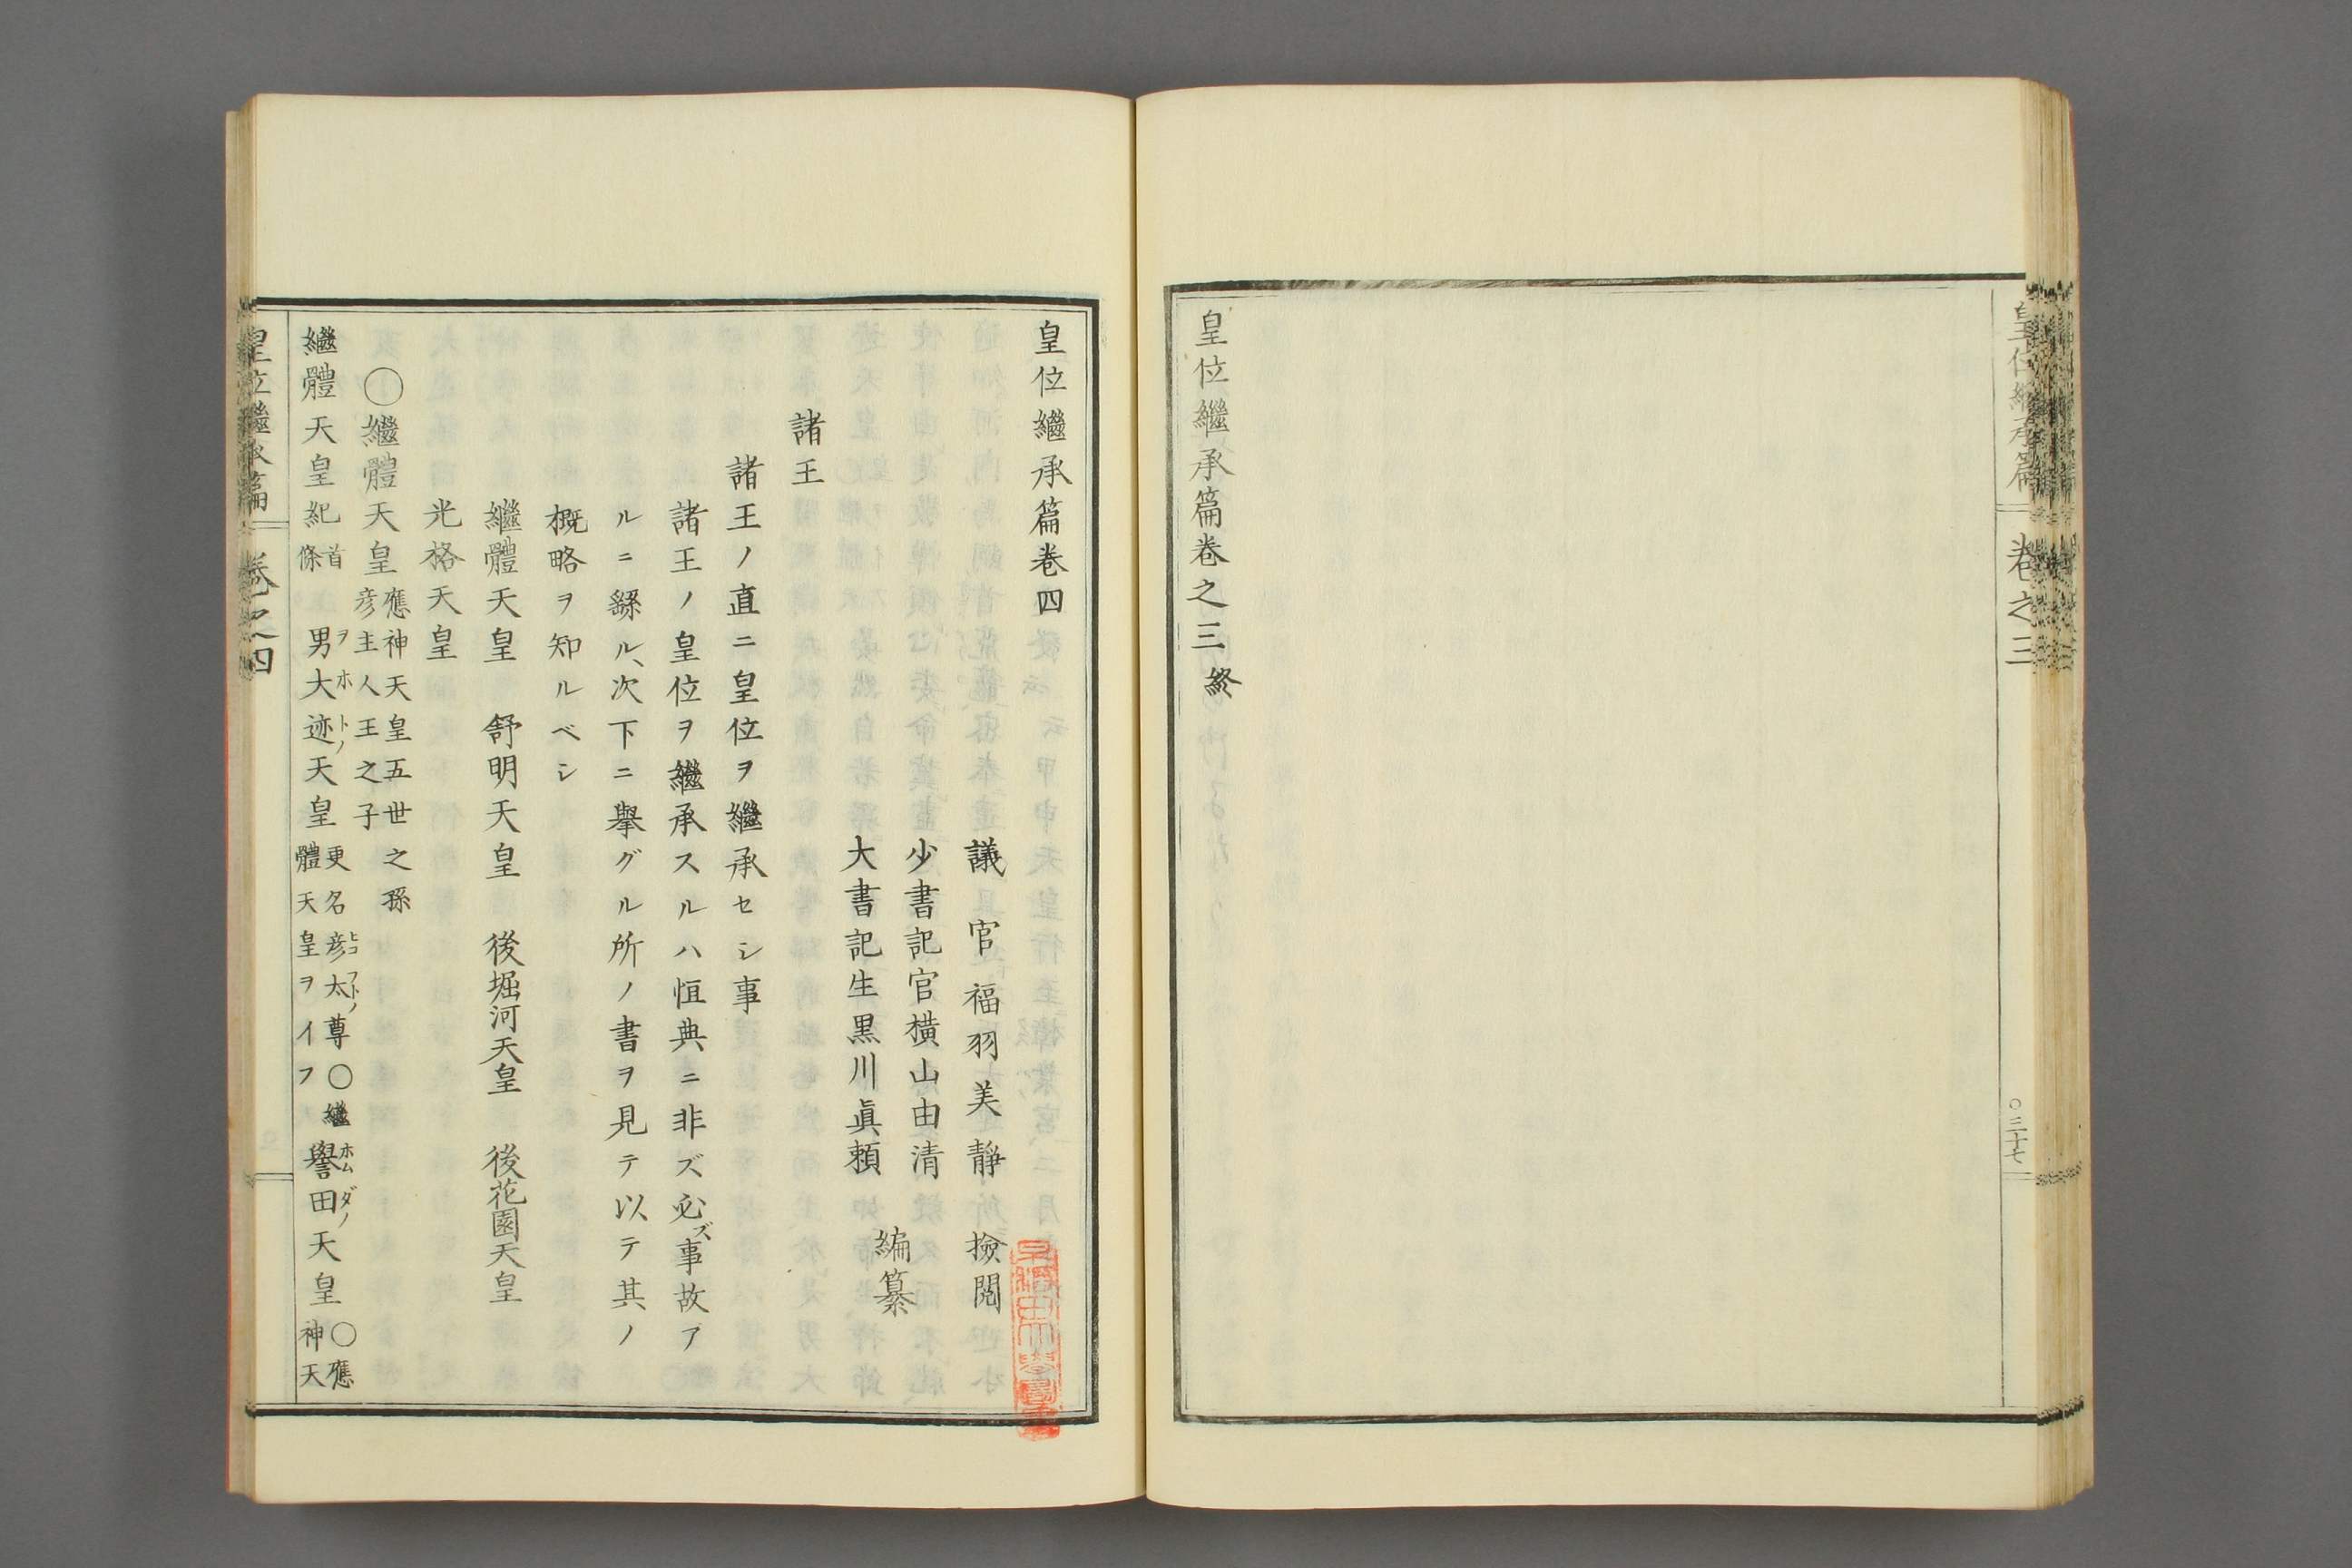 皇位繼承篇
卷之三
〇三十七
皇位繼承篇卷之三終
皇位繼承篇卷四
議官福羽美靜 撿閲
少書記官橫山由清
大書記生黒川眞頼
編纂
諸王
諸王ノ直ニ皇位ヲ繼承セシ事
諸王ノ皇位ヲ繼承スルハ恒典ニ非ズ必ズ事故ア
ルニ繇ル、次下ニ擧グル所ノ書ヲ見テ以テ其ノ
概略ヲ知ルベシ
繼體天皇 舒明天皇 後堀河天皇 後花園天皇
光格天皇
〇繼體天皇應神天皇五世之孫
彦主人王之子
繼體天皇紀首
條男大迹天皇更名彦太尊〇繼
體天皇ヲイフ譽田天皇〇應
神天
ヲホトノ
ヒコフトノ
ホムダノ
皇位繼承篇
卷之四